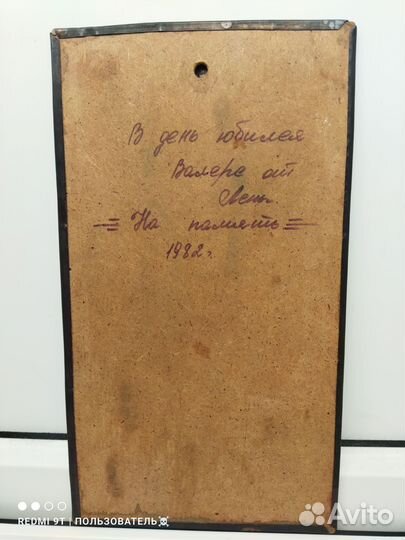 В день юбилея
Валере от
Лены.
= На память =
1982 г.
REDMI 9T | ПОЛЬЗОВАТЕЛЬ☠
Avito